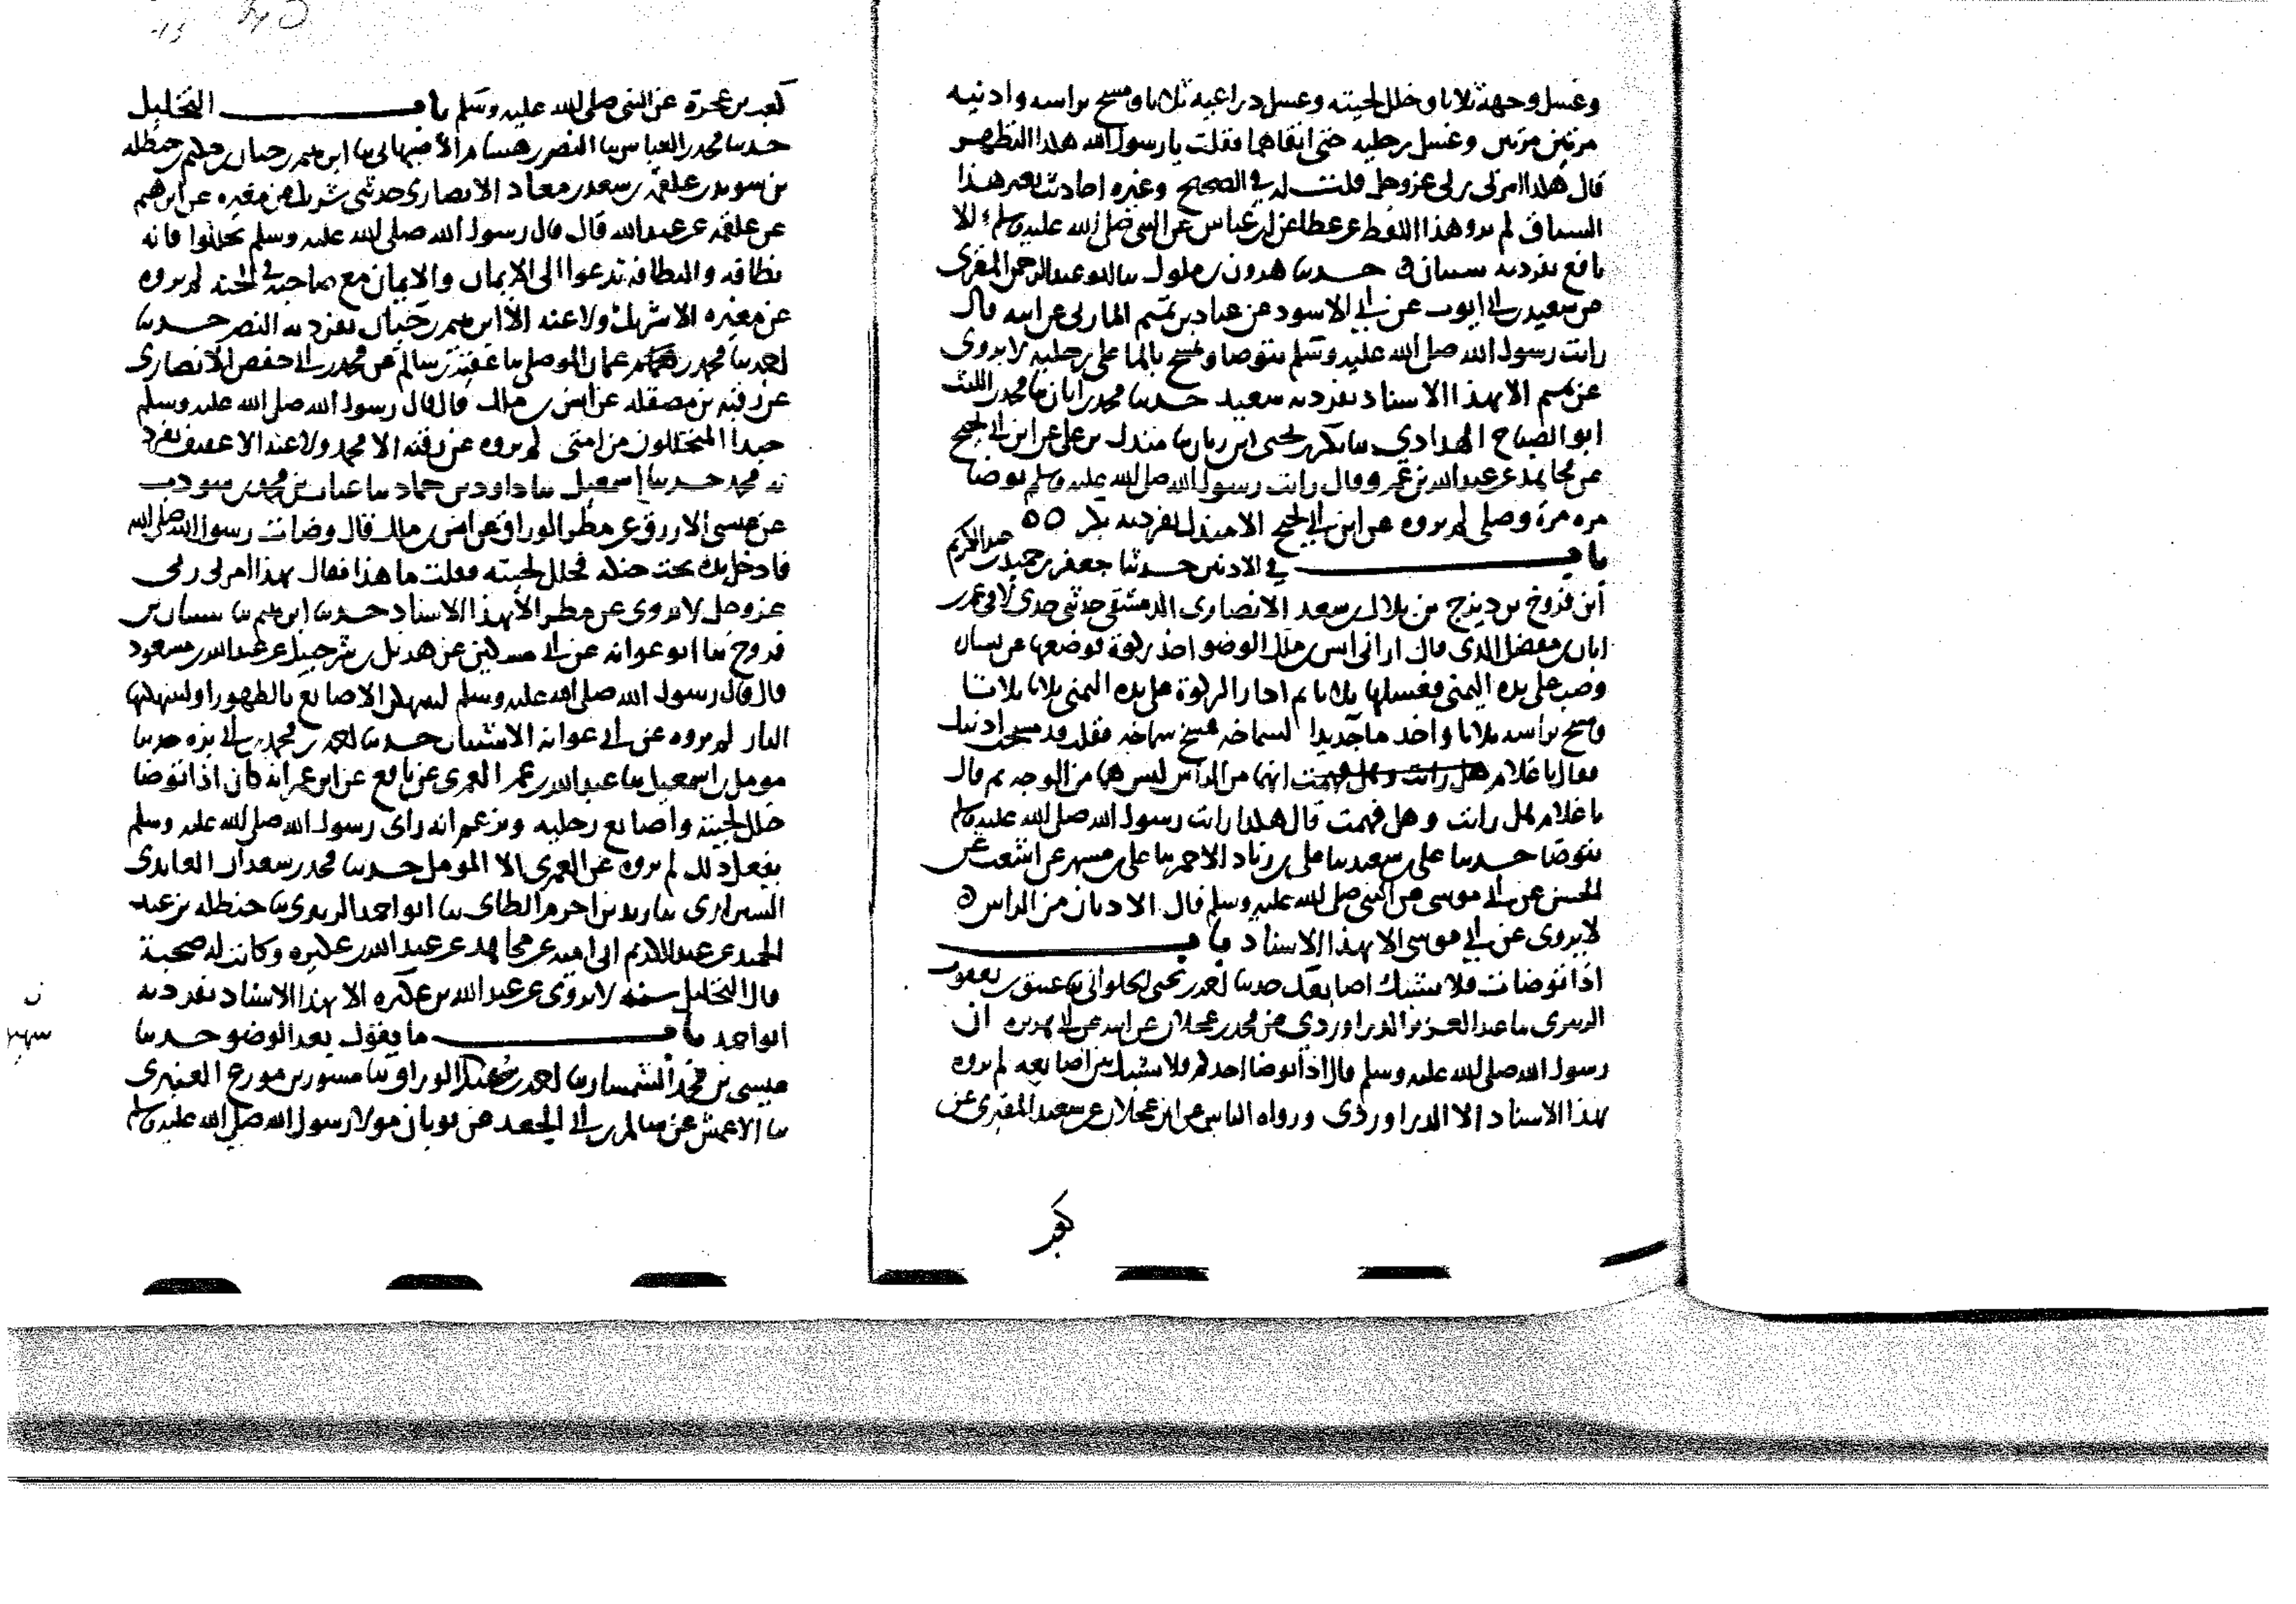 وغسل وجهه ثلاثا وخلل لحيته وغسل ذراعيه ثلاثا ومسح براسه واذنيه
مرتين مرتين وغسل رجليه حتى انقاهما فقلت يا رسول الله هكذا التطهر
قال هكذا امرني ربي عزوجل قلت له في الصحيح وغيره احاديث بغير هذا
السياق لم يرو هذا اللفظ عن عطا عن ابن عباس عن النبي صلى الله عليه وسلم الا
نافع تفرد به شيبان حدثنا هرون بن ملول ثنا ابو عبد الرحمن المقري
عن سعيد بن ابي ايوب عن ابي الاسود عن عباد بن تميم المازني عن ابيه قال
رايت رسول الله صلى الله عليه وسلم يتوضا ويمسح بالما على رجليه لا يروى
عن تميم الا بهذا الاسناد تفرد به سعيد حدثنا محمد بن ابان ثنا محمد بن الليث
ابو الصباح الهدادي ثنا بكر بن يحيى ابن زبان ثنا مندل بن علي عن ابن ابي نجيح
عن مجاهد عن عبد الله بن عمرو قال رايت رسول الله صلى الله عليه وسلم توضا
مره مرة وصلى لم يروه عن ابن ابي نجيح الا مندل تفرد به بكر
باب في الاذنين حدثنا جعفر بن حميد بن عبد الكريم
ابن فروخ بن ديزج بن بلال بن سعد الانصاري الدمشقي حدثني جدي لامي عمر بن
ابان بن مفضل المدني قال اراني انس بن ملك الوضو اخذ ركوة فوضعها عن يساره
وصب على يده اليمنى فغسلها ثلاثا ثم ادار الركوة على يده اليمنى ثلاثا ثلاثا
ومسح براسه ثلاثا واخذ ما جديدا لسماخه فمسح سماخه فقلت قد مسحت اذنيك
فقال يا غلام هل رايت وهل فهمت انها من الراس ليس هما من الوجه ثم قال
يا غلام هل رايت وهل فهمت قال هكذا رايت رسول الله صلى الله عليه وسلم
يتوضا حدثنا علي بن سعيد ثنا علي بن زياد الاحمر ثنا علي بن مسهر عن اشعث عن
الحسن عن ابي موسى عن النبي صلى الله عليه وسلم قال الاذنان من الراس ه
لا يروى عن ابي موسى الا بهذا الاسناد باب
اذا توضات فلا تشبك اصابعك حدثنا احمد بن يحيى الحلواني ثنا عتيق بن يعقوب
الزبيري ثنا عبد العزيز الدراوردي عن محمد بن عجلان عن ابيه عن ابي هريره ان
رسول الله صلى الله عليه وسلم قال اذا توضا احدكم فلا يشبك بين اصابعه لم يروه
بهذا الاسناد الا الدراوردي ورواه الناس عن ابن عجلان عن سعيد المقبري عن
كعب
كعب بن عجرة عن النبي صلى الله عليه وسلم باب التخليل
حدثنا محمد بن العباس ثنا النضر بن هشام الاصبهاني ثنا ابرهيم بن حيان بن حكيم بن حنظله
بن سويد بن علقمه بن سعد بن معاذ الانصاري حدثني شريك عن مغيره عن ابرهيم
عن علقمه عن عبد الله قال قال رسول الله صلى الله عليه وسلم تخللوا فانه
نظافه والنظافه تدعوا الى الايمان والايمان مع صاحبه في الجنه لم يروه
عن مغيره الا شريك ولا عنه الا ابرهيم بن حيان تفرد به النضر حدثنا
احمد ثنا محمد بن عمار الموصلي ثنا عفيف بن سالم عن محمد بن ابي حفص الانصاري
عن رقبه بن مصقله عن انس بن ملك قال قال رسول الله صلى الله عليه وسلم
حبذا المتخللون من امتي لم يروه عن رقبه الا محمد ولا عنه الا عفيف تفرد
به محمد حدثنا اسمعيل ثنا داود بن حماد ثنا عتاب بن محمد بن شوذب
عن عيسى الازرق عن مطر الوراق عن انس بن ملك قال وضات رسول الله صلى الله
فادخل يده تحت حنكه فخلل لحيته فقلت ما هذا فقال بهذا امرني ربي
عزوجل لا يروى عن مطر الا بهذا الاسناد حدثنا ابرهيم ثنا شيبان بن
فروخ ثنا ابو عوانه عن ابي مسكين عن هذيل بن شرحبيل عن عبد الله بن مسعود
قال قال رسول الله صلى الله عليه وسلم لتنهكن الاصابع بالطهور او لتنهكنها
النار لم يروه عن ابي عوانه الا شيبان حدثنا احمد بن محمد بن ابي بزه حدثنا
مومل بن اسمعيل ثنا عبد الله بن عمر العمري عن نافع عن ابن عمر انه كان اذا توضا
خلل لحيته واصابع رجليه ويزعم انه راى رسول الله صلى الله عليه وسلم
يفعل ذلك لم يروه عن العمري الا المومل حدثنا محمد بن سعدان العابدي
الشيرازي ثنا زيد بن اخرم الطاي ثنا ابو احمد الزبيري ثنا حنظله بن عبد
الحميد عن عبد الكريم ابي اميه عن مجاهد عن عبد الله بن عكبره وكانت له صحبة
قال التخليل سنه لا يروى عن عبد الله بن عكبره الا بهذا الاسناد تفرد به
ابو احمد باب ما يقول بعد الوضو حدثنا
عيسى بن محمد السمسار ثنا احمد بن الوراق ثنا مسور بن مورع العنبري
ثنا الاعمش عن سالم بن ابي الجعد عن ثوبان مولا رسول الله صلى الله عليه وسلم